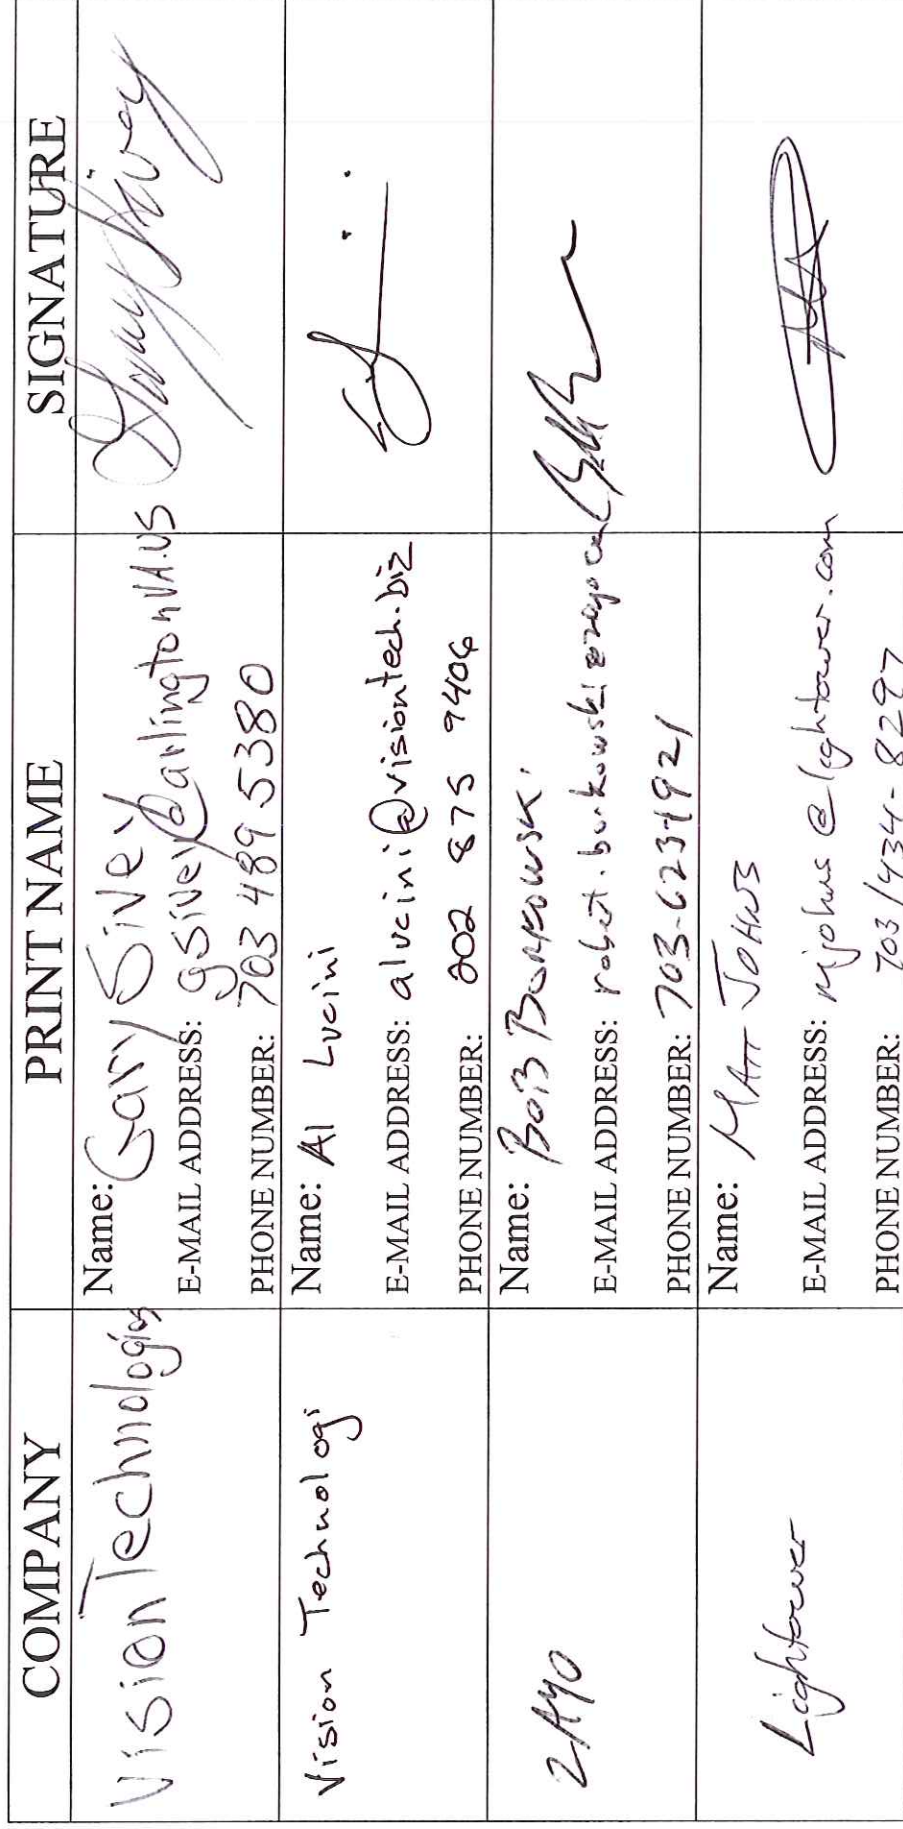 COMPANY PRINT NAME SIGNATURE
Vision Technologies
Name: Gary Sivey
E-MAIL ADDRESS: gsivey@arlingtonVA.US
PHONE NUMBER: 703 489 5380
Vision Technologi
Name: Al Lucini
E-MAIL ADDRESS: alucini@visiontech.biz
PHONE NUMBER: 202 875 9406
ZAYO
Name: BOB BORKOWSKI
E-MAIL ADDRESS: robert.borkowski@zayo.com
PHONE NUMBER:
Lightower
Name: MATT JOHNS
E-MAIL ADDRESS: mjohns@lightower.com
PHONE NUMBER: 703/434-8297